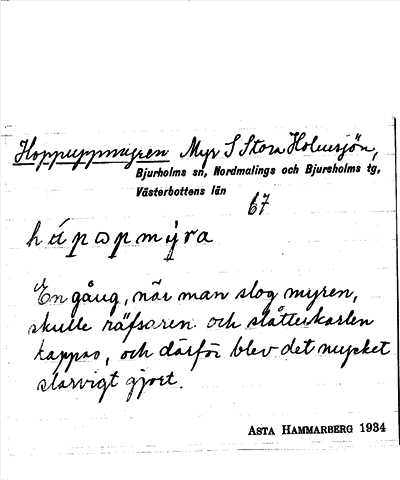 Hoppuppmyren Myr S Stora Holmsjön,
Bjurholms sn, Nordmalings och Bjursholms tg,
Västerbottens län
67
En gång, när man slog myren,
skulle räfsaren och slåtterkarlen
kappas, och därför blev det mycket
slarvigt gjort.
ASTA HAMMARBERG 1934